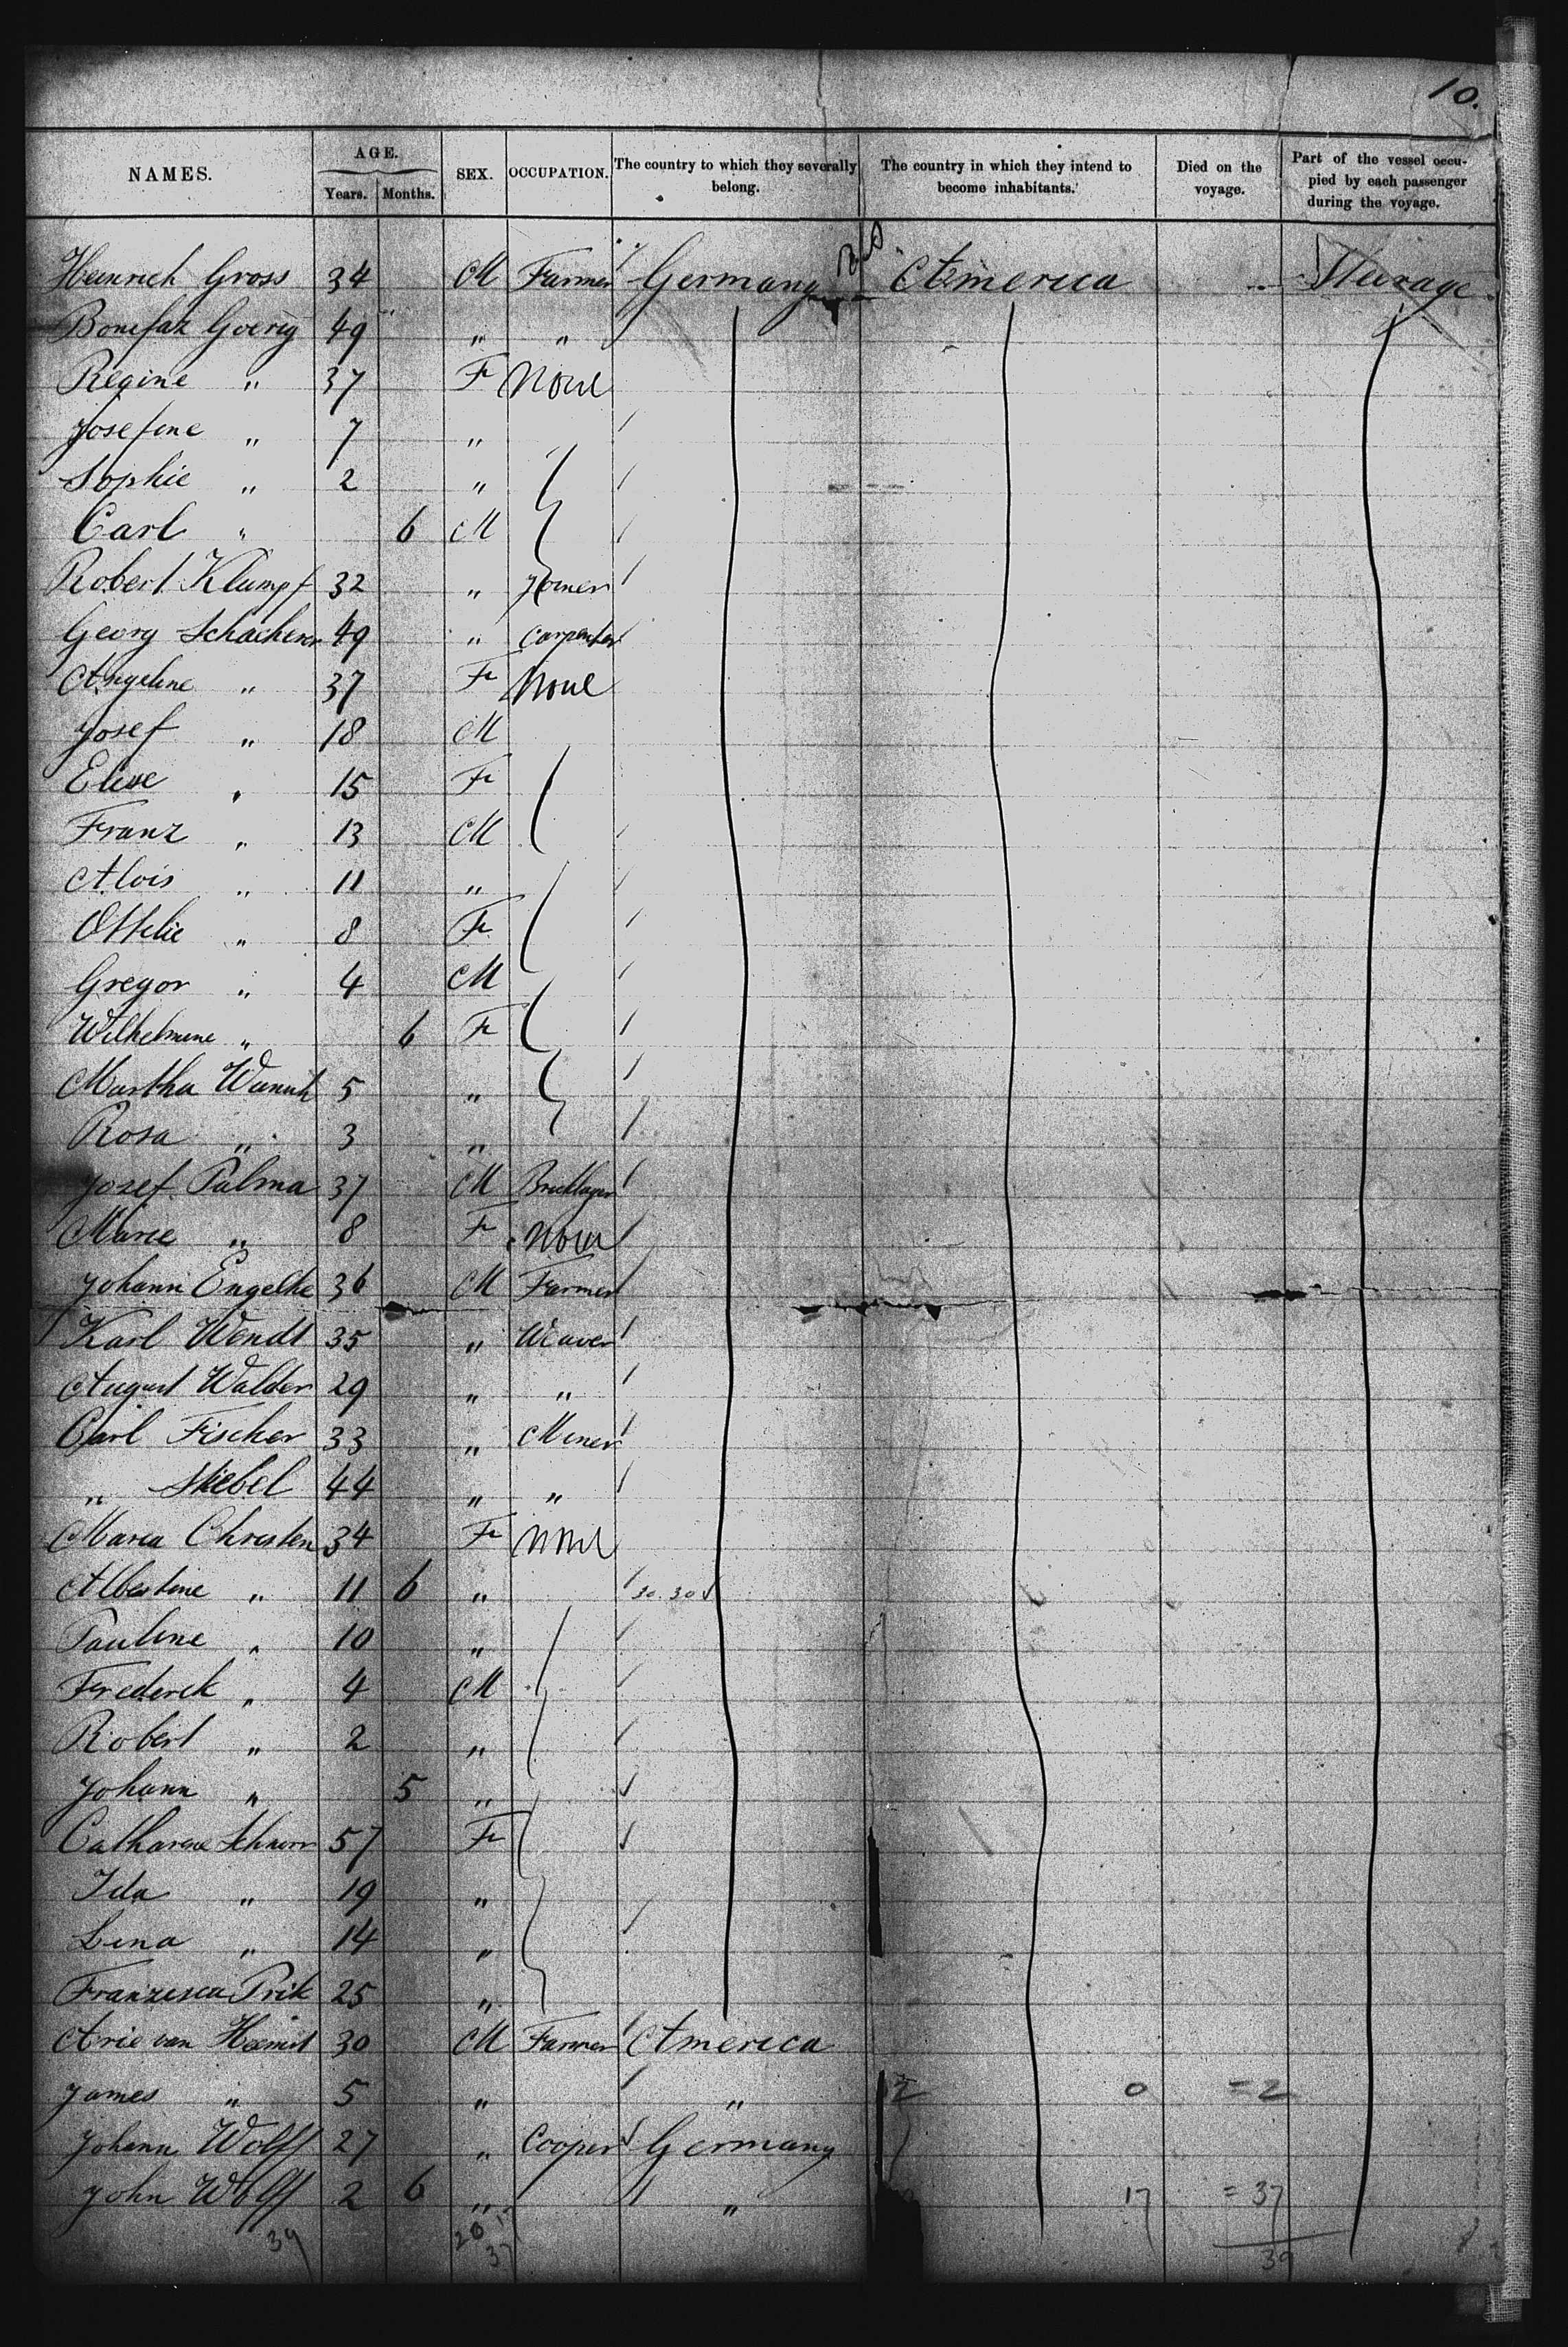 10.
NAMES. AGE. Years. Months. SEX. OCCUPATION. The country to which they severally belong. The country in which they intend to become inhabitants. Died on the voyage. Part of the vessel occupied by each passenger during the voyage.
Heinrich Gross 34 M Farmer Germany America Steerage
Bonifaz Goerig 49 " "
Regine " 37 F None
Josefine " 7 "
Sophie " 2 "
Carl " 6 M
Robert Klumpf 32 " Joiner
Georg Schacherer 49 " Carpenter
Angeline " 37 F None
Josef " 18 M
Elise " 15 F
Franz " 13 M
Alois " 11 "
Ottilie " 8 F
Gregor " 4 M
Wilhelmine " 6 F
Martha 5 "
Rosa " 3 "
Josef Palma 37 M Bricklayer
Marie " 8 F None
Johann Engelke 36 M Farmer
Karl Wendt 35 " Weaver
August Walder 29 " "
Carl Fischer 33 " Miner
" Stiebel 44 " "
Maria Christen 34 F None
Albertine " 11 6 " 30.30
Pauline " 10 "
Frederick " 4 M
Robert " 2 "
Johann " 5 "
Catharine Schnurr 57 F
Ida " 19 "
Lina " 14 "
Franzisca Prik 25 "
Arie van Heemst 30 M Farmer America
James " 5 " " 2 0 = 2
Johann Wolff 27 " Cooper Germany
John Wolff 2 6 " " 17 = 37
39 20 17 37 39